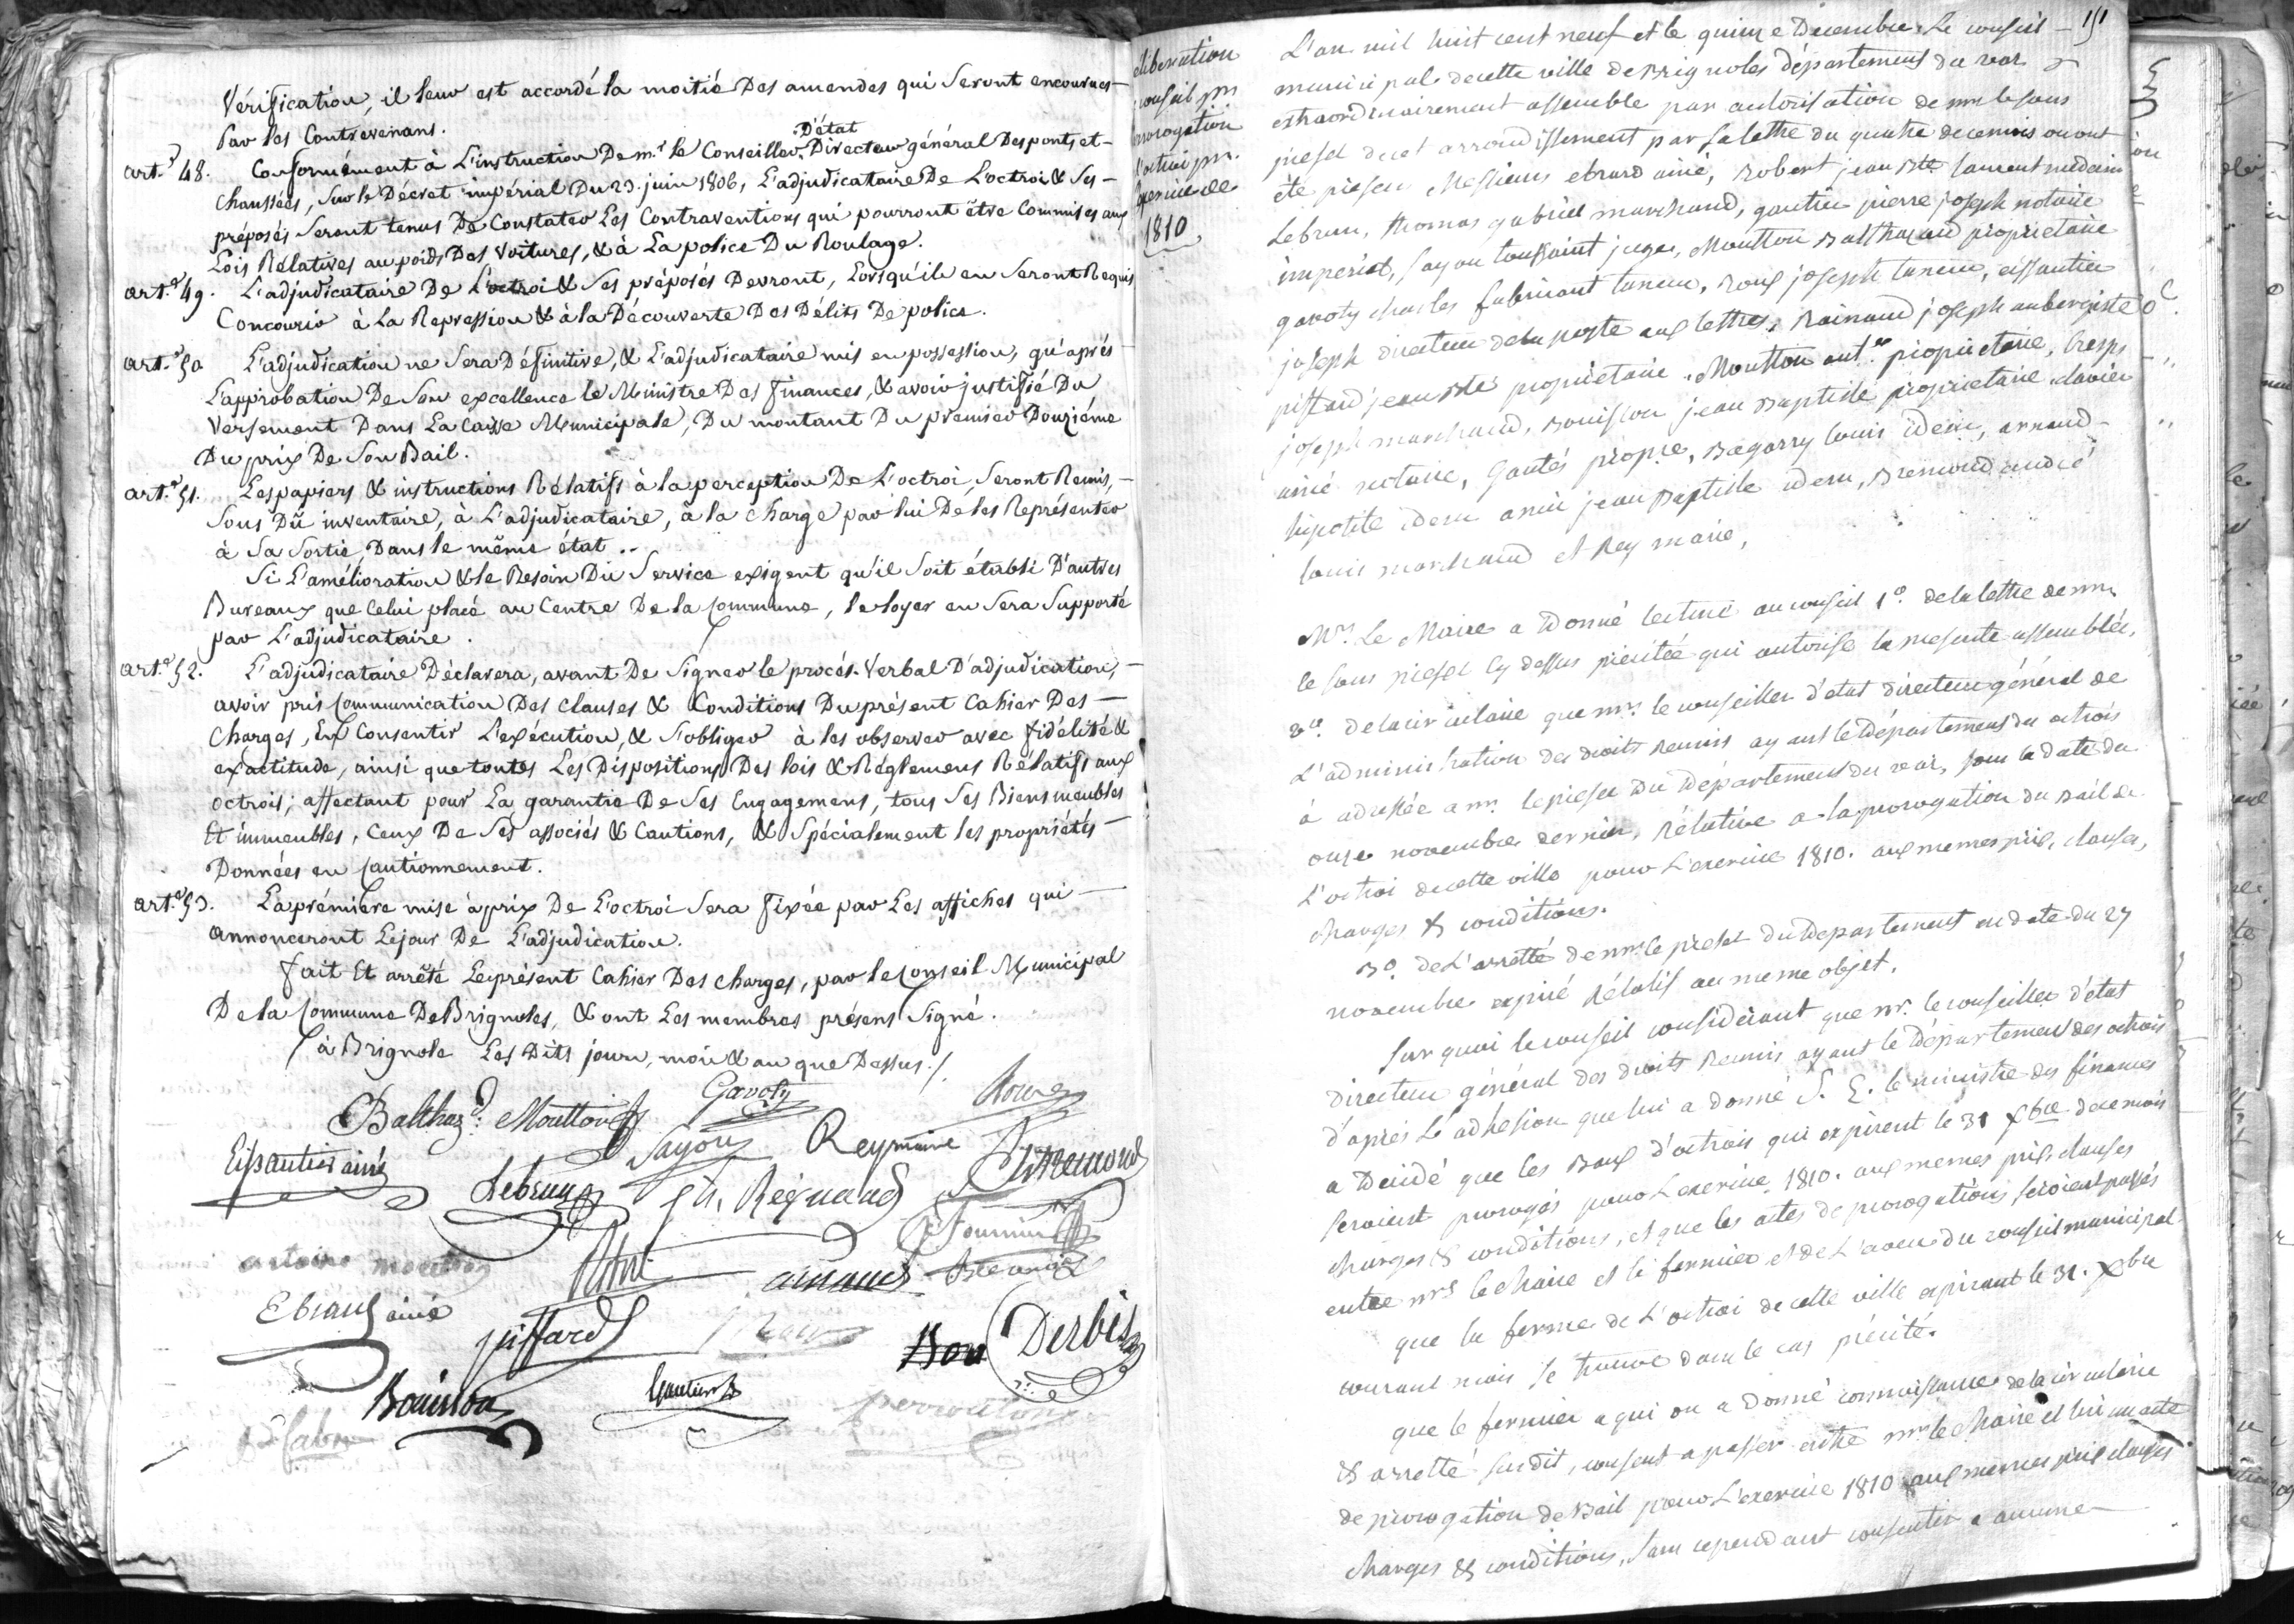 Vérification, il leur est accordé la moitié Des amendes qui Seront encourues
Par les Contrevenans.
art.e 48. Conformément à L'instruction De m.r le Conseiller D'état Directeur général Des ponts et
chaussées, Sur le Décret impérial Du 23. juin 1806, L'adjudicataire De L'octroi & Ses
préposés Seront tenus De Constater Les Contraventions qui pourront être Commises aux
Lois Rélatives au poids Des Voitures, & à La police Du Roulage.
art.e 49. L'adjudicataire De L'octroi & Ses préposés Devront, Lorsqu'ils en Seront Requis
Concourir à La Repression & à la Découverte Des Délits De police.
art.e 50 L'adjudication ne Sera Définitive, & L'adjudicataire mis en possession, qu'aprés
L'approbation De Son excellence le Ministre Des finances, & avoir justifié Du
Versement Dans La Caisse Municipale, Du montant Du premier Douziéme
Du prix De Son Bail.
art.e 51. Les papiers & instructions Rélatifs à la perception De L'octroi, Seront Remis,
Sous Dû inventaire, à L'adjudicataire, à la charge par lui De les Représenter
à Sa Sortie, Dans le même état..
Si L'amélioration & le Besoin Du Service exigent qu'il Soit établi D'autres
Bureaux que Celui placé au Centre De la Commune, le loyer en Sera Supporté
par L'adjudicataire.
art.e 52. L'adjudicataire Déclarera, avant De Signer le procés-Verbal D'adjudication,
avoir pris Communication Des Clauses & Conditions Du présent Cahier Des
Charges, En Consentir L'exécution, & S'obliger à les observer avec fidélité &
exactitude, ainsi que toutes Les Dispositions Des lois & Réglemens Rélatifs aux
octrois; affectant pour La garantie De Ses Engagemens, tous Ses Biens meubles
Et immeubles, Ceux De Ses associés & Cautions, & Spécialement les propriétés
Données en Cautionnement.
art.e 53. La prémière mise à prix De L'octroi Sera fixée par Les affiches qui
annonceront Le jour De L'adjudication.
fait Et arrêté Le présent Cahier Des charges, par le Conseil Municipal
De la Commune De Brignoles, & ont Les membres présens Signé.
à Brignole Les Dits jour, mois & an que Dessus./.
Balthaz.d Moutton Gavoty Roux
Eissautier ainé Sayou Rey marie Bremond
Lebrun Reynaud
antoine moutton amaud fournier
Ebrard ainé piffard Bon Derbès
Bouisson Gautier
fabre
151
L'an mil huit cent neuf et le quinze Decembre. Le conseil
municipal de cette ville de Brignoles département du var
extraordinairement assemblé par autorisation de mr le sous
prefet de cet arrondissement par sa lettre du quatre decembre ou ont
été présens Messieurs ebrard ainé, Robert jean Bte laurent medecin
Lebrun, thomas gabriel marchand, gautier pierre joseph notaire
imperial, Sayou toussaint juge, Moutton Balthazard propriétaire
gavoty charles fabricant taneur, roux joseph taneur, eissautier
joseph directeur de la poste aux lettres, Rainaud joseph aubergiste
piffard jean Bte propriétaire, Moutton ant.ne propriétaire, Cresp
joseph marchand, Bouisson jean Baptiste propriétaire, clavier
ainé notaire, Goutés propre, Bagarry louis idem, arnaud
hipolite idem amic jean Baptiste idem, Bremond andré
louis marchand et Rey marie,
eliberation
conseil pr
prorogation
l'octroi pr.
exercice de
1810
Mr. Le Maire a Donné lecture au conseil 1o. de la lettre de mr
le sous prefet cy dessus précitée qui autorise la presente assemblée,
2o. de la circulaire que mr. le conseiller d'état directeur général de
L'administration des droits reunis ayant le département des octrois
à adressée a mr. le prefet du département du var, sous la date du
onze novembre dernier, Rélative a la prorogation du Bail de
L'octroi de cette ville pour L'exercice 1810. aux memes prix, clauses,
charges & conditions.
3o. de L'arretté de mr. le prefet du département en date du 27
novembre expiré Rélatif au meme objet.
Sur quoi le conseil considérant que mr. le conseiller d'état
Directeur général des droits Reunis ayant le Département des octrois
d'aprés L'adhesion que lui a donné S. E. le ministre des finances
a Décidé que les Baux d'octrois qui expirent le 31 Xbre de ce mois
seroient prorogés pour L'exercice 1810. aux memes prix, clauses
charges & conditions, et que les actes de prorogations, seroient passés
entre mrs le Maire et le fermier et de L'aveu du conseil municipal
que la ferme de L'octroi de cette ville expirant le 31. Xbre
courant mois se trouve dans le cas précité.
que le fermier a qui on a Donné connoissance de la circulaire
& arretté susdit, consent a passer entre mr le Maire et lui un acte
de prorogation de Bail pour L'exercice 1810 aux memes prix clauses
charges & conditions, sans cependant consentir a aucune